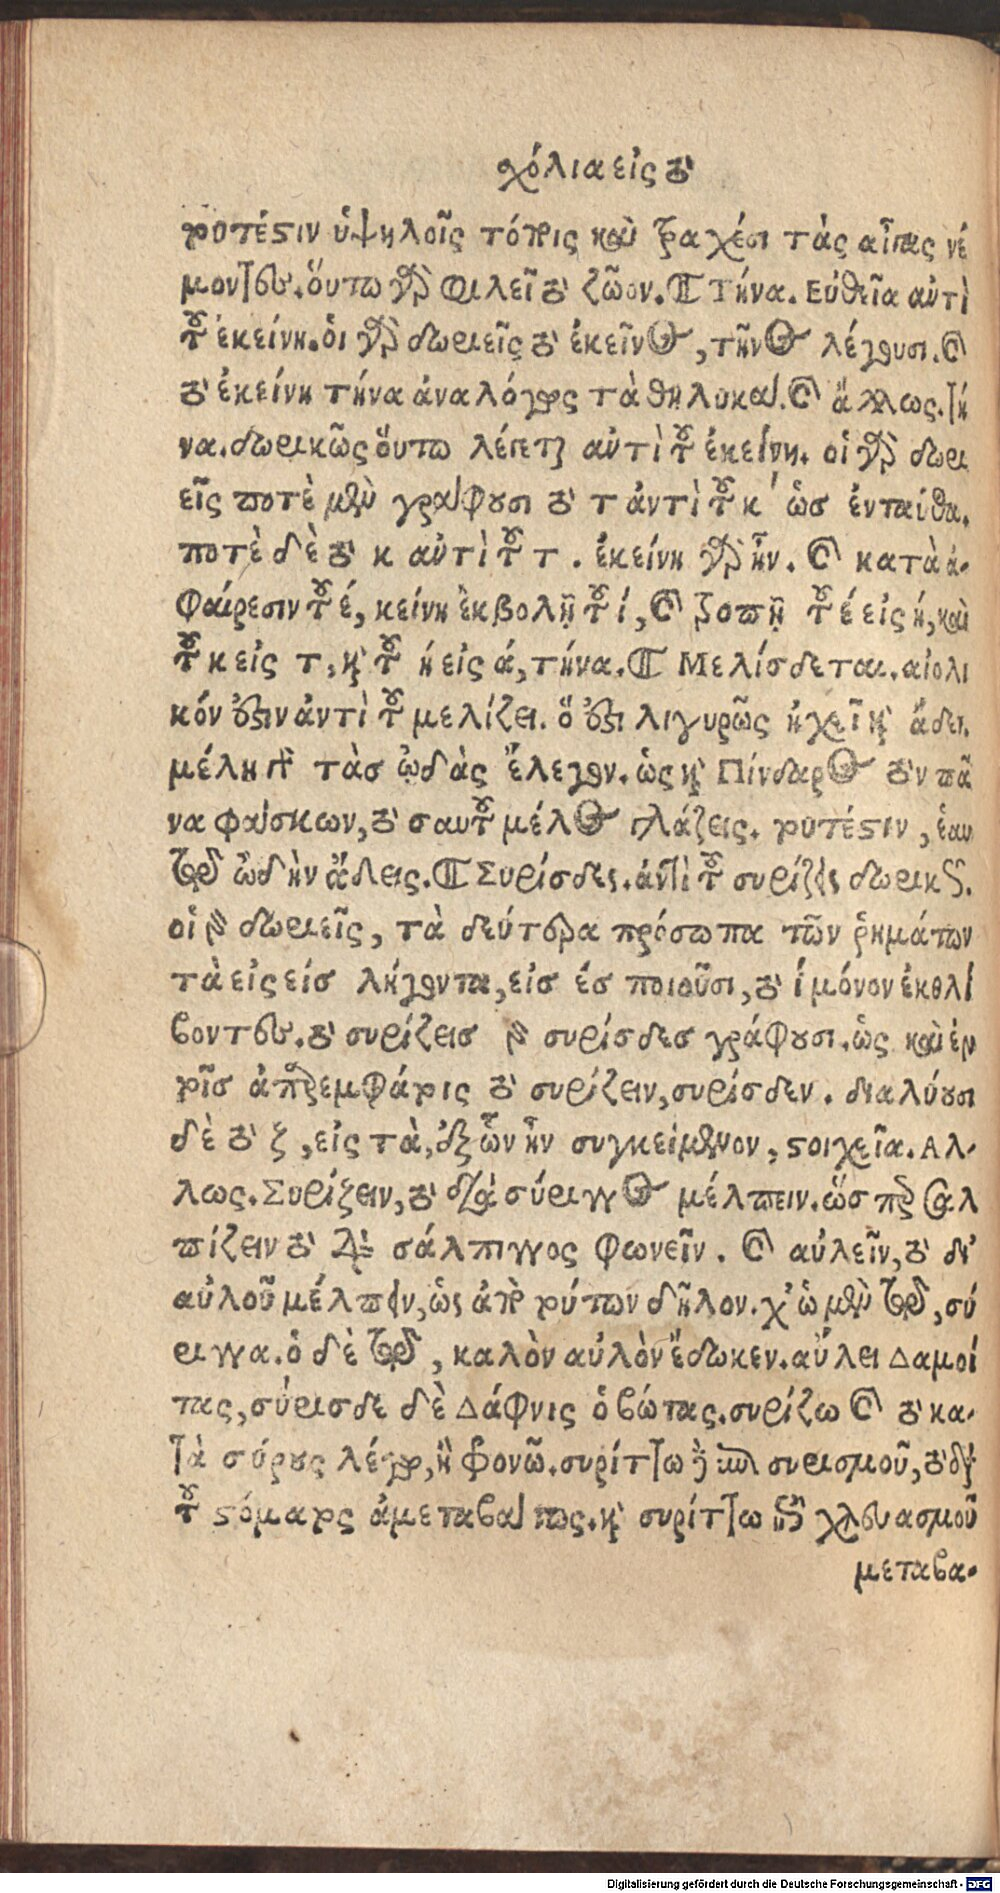 χόλια εἰς τὸ
ρουτέστιν ὑψηλοῖς τόποις καὶ τραχέσι τὰς αἶγας νέ
μονται. οὕτω γὰρ φιλεῖ τὸ ζῶον. Τήνα. Εὐθεῖα ἀντὶ
τοῦ ἐκείνη. οἱ γὰρ δωριεῖς τὸ ἐκεῖνος, τῆνος λέγουσι. καὶ
τὸ ἐκείνη τήνα ἀναλόγως τὰ θηλυκά. καὶ ἄλλως. τή
να. δωρικῶς οὕτω λέγεται ἀντὶ τοῦ ἐκείνη. οἱ γὰρ δωρι
εῖς ποτὲ μὲν γράφουσι τὸ τ ἀντὶ τοῦ κ ὡς ἐνταύθα.
ποτὲ δὲ τὸ κ ἀντὶ τοῦ τ. ἐκείνη γὰρ ἦν. καὶ κατὰ ἀ-
φαίρεσιν τοῦ έ, κείνη ἐκβολῇ τοῦ ί, καὶ τροπῇ τοῦ έ εἰς ή, καὶ
τοῦ κ εἰς τ, καὶ τοῦ ή εἰς ά, τήνα. Μελίσδεται. αἰολι
κόν ἐστιν ἀντὶ τοῦ μελίζει. ὅ ἐστι λιγυρῶς ἠχεῖ καὶ ἄδει.
μέλη γὰρ τὰς ᾠδὰς ἔλεγον. ὡς καὶ Πίνδαρος τὸν πᾶ
να φάσκων, τὸ σαυτοῦ μέλος γλάζεις. ρουτέστιν, ἑαυ
τῷ ὠδὴν ἄδεις. Συρίσδες. ἀντὶ τοῦ συρίζεις δωρικῶς.
οἱ γὰρ δωριεῖς, τὰ δεύτερα πρόσωπα τῶν ῥημάτων
τὰ εἰς εἰς λήγοντα, εἰς ές ποιοῦσι, τὸ ί μόνον ἐκθλί
βοντες. τὸ συρίζεις γὰρ συρίσδες γράφουσι. ὡς καὶ ἐν
ροῖς ἀπαρεμφάτοις τὸ συρίζειν, συρίσδεν. διαλύουσι
δὲ τὸ ζ, εἰς τὰ, ἐξ ὧν ἦν συγκείμενον, στοιχεῖα. Αλ-
λως. Συρίζειν, τὸ διὰ σύριγγος μέλπειν. ὥσπερ σαλ
πίζειν τὸ διὰ σάλπιγγος φωνεῖν. καὶ αὐλεῖν, τὸ δι'
αὐλοῦ μέλπειν, ὡς ἀπὸ ρούτων δῆλον. χ' ὡ μὲν τῷ, σύ
ριγγα. ὁ δὲ τῷ, καλὸν αὐλὸν ἔδωκεν. αὔλει Δαμοί
τας, σύρισδε δὲ Δάφνις ὁ βώτας. συρίζω καὶ τὸ κα-
τὰ σύρους λέγω, ἢ φονῶ. συρίττω συρισμοῦ,
τοῦ στόματος ἀμεταβάτως. καὶ συρίττω χλευασμοῦ
μεταβα-